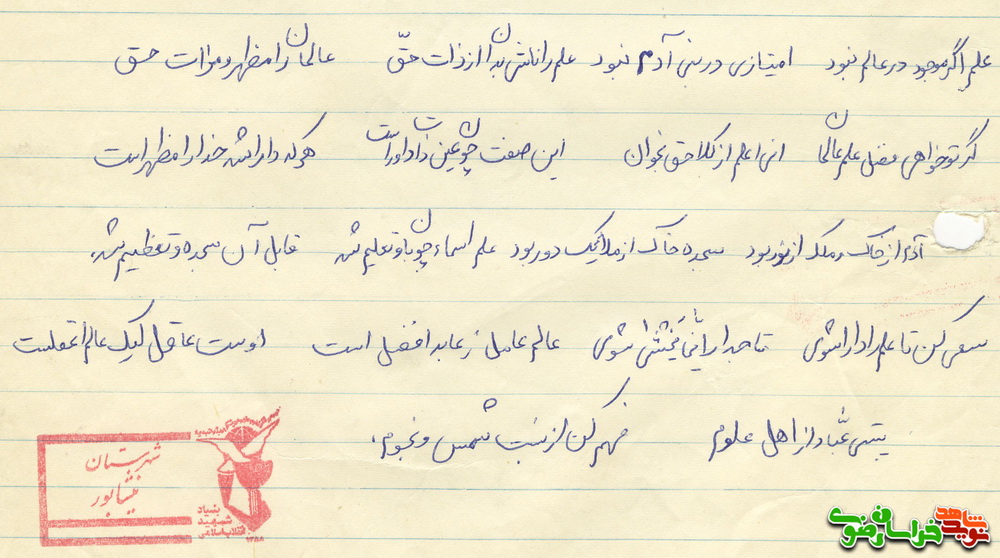 علم اگر موجود در عالم نبود امتیازی در بنی آدم نبود علم را ناشی بدان از ذات حقّ عالمان را مظهر و مرات حق
گر تو خواهی فضل علم عالمان انی اعلم از کلام حق بخوان این صفت چون عین ذات داور است هر که دارا شد خدا را مظهر است
آدم از خاک و ملک از نور بود سجده خاک از ملائک دور بود علم اسماء چون باو تعلیم شد قابل آن سجده و تعظیم شد.
سعی کن تا علم را دارا شوی تاجدار انما یخشی شوی عالم عامل ز عابد افضل است اوست عاقل لیک عالم اعقلست
نسبتی عبّاد از اهل علوم فهم کن از نسبت شمس و نجوم.
شهرستان
نیشابور
بنیاد
شهید
انقلاب اسلامی
نوید شاهد
خراسان رضوی